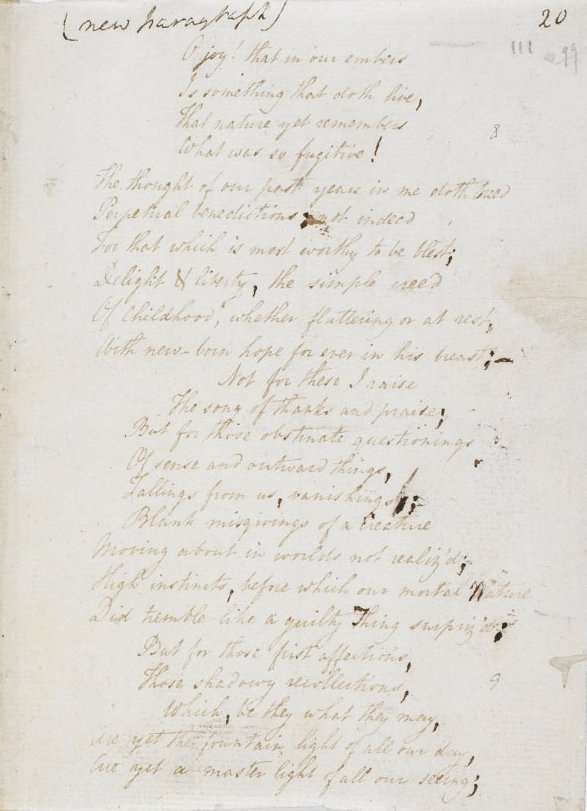 (new paragraph) 20
111 99
O joy! that in our embers
Is something that doth live,
That nature yet remembers
What was so fugitive!
The thought of our past years in me doth breed
Perpetual benedictions: not indeed
For that which is most worthy to be blest;
Delight & liberty, the simple creed
Of Childhood, whether fluttering or at rest,
With new-born hope for ever in his breast;—
Not for these I raise
The song of thanks and praise;
But for those obstinate questionings
Of sense and outward things,
Fallings from us, vanishings;
Blank misgivings of a Creature
Moving about in worlds not realiz'd;
High instincts, before which our mortal Nature
Did tremble like a guilty Thing surpriz'd:
But for those first affections,
Those shadowy recollections,
Which, be they what they may,
Are yet the fountain light of all our day,
Are yet a master light of all our seeing;